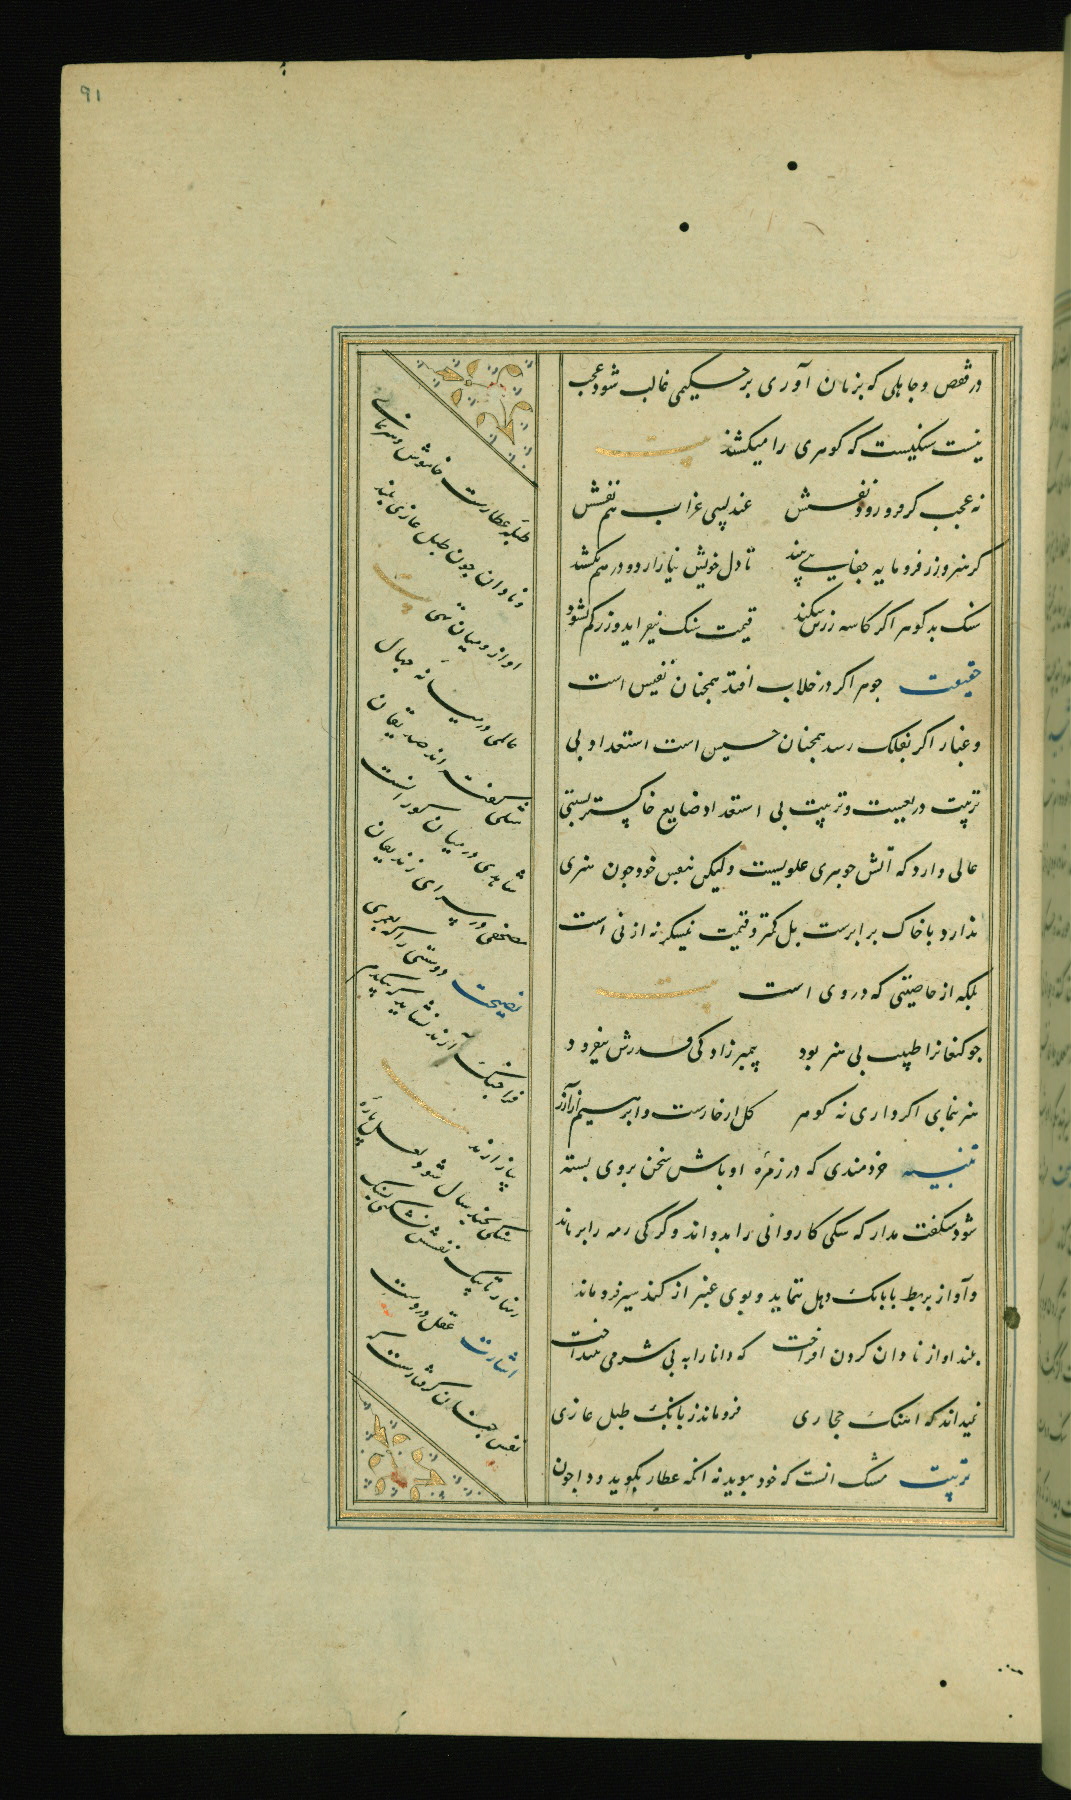 ۹۱
در قفص و جاهلی که بزبان آوری بر حکیمی غالب شود عجب
نیست سنکیست که کوهری را میکشند بیت
نه عجب کر فرو رود نفسش عندلیبی غراب هم قفسش
کر هنرور ز فرومایه جفایی بیند تا دل خویش نیازارد و در هم نشد
سنک بدکوهر اکر کاسه زرین شکند قیمت سنک نیفزاید و زر کم نشود
حقیقت جوهر اکر در خلاب افتد همچنان نفیس است
و غبار اکر بفلک رسد همچنان خسیس است استعداد بی
تربیت دریغست و تربیت بی استعداد ضایع خاکستر نسبتی
عالی دارد که آتش جوهری علویست ولیکن بنفس خود جون هنری
ندارد با خاک برابرست بل کمتر و قیمت نیشکر نه از نی است
بلکه از خاصیتی که در وی است بیت
جو کنعانرا طبیعت بی هنر بود پیمبرزادکی قدرش نیفزود
هنر بنمای اکر داری نه کوهر کل از خارست و ابراهیم از آزر
تنبیه خردمندی که در زمره اوباش سخن بروی بسته
شود شکفت مدار که سکی کاروانی را بدواند و کرکی رمه را برماند
و آواز بربط با بانک دهل نتابد و بوی عنبر از کند سیر فروماند
بلند اواز نادان کردن افراخت که دانا را به بی شرمی بینداخت
نمیداند که اهنک حجازی فروماند ز بانک طبل غازی
تربیت مشک انست که خود ببوید نه انکه عطار بکوید و دانا جون
طبله عطارست خاموش و هنر نمای
و نادان جون طبل غازی بلند
اواز و میان تهی بیت
عالمی در میانه جهال
مثلی کفته اند صدیقان
شاهدی در میان کورانست
مصحفی در سرای زندیقان
نصیحت دوستی را که بعمری
فرا جنک آرند نشاید که بیکدم
بیازارند
سنکی بچند سال شود لعل پاره
زنهار تا بیک نفسش نشکنی بسنک
اشارت عقل در دست
نفس جنان کرفتارست که